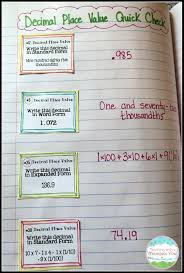 Decimal Place Value Quick Check
Decimal Place Value
Write this decimal
in Standard Form
Nine hundred eighty five
thousandths
.985
Decimal Place Value
Write this decimal
in Word Form
1.072
One and seventy-two
thousandths
Decimal Place Value
Write this decimal
in Expanded Form
136.9
1x100 + 3x10 + 6x1 + 9(
Decimal Place Value
Write this decimal
in Standard Form
10 x 7 + 4 x 1 + (1/10)
+ 9 x (1/100)
74.19